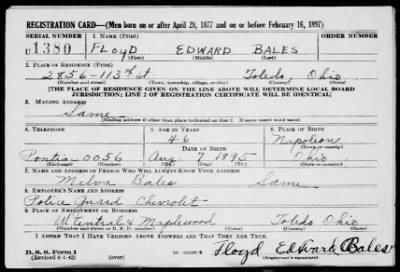 REGISTRATION CARD—(Men born on or after April 28, 1877 and on or before February 16, 1897)
SERIAL NUMBER 1. NAME (Print) ORDER NUMBER
U 1380 FLOYD EDWARD BALES
(First) (Middle) (Last)
2. PLACE OF RESIDENCE (Print)
2856-113th St Toledo, Ohio
(Number and street) (Town, township, village, or city) (County) (State)
[THE PLACE OF RESIDENCE GIVEN ON THE LINE ABOVE WILL DETERMINE LOCAL BOARD
JURISDICTION; LINE 2 OF REGISTRATION CERTIFICATE WILL BE IDENTICAL]
3. MAILING ADDRESS
Same
(Mailing address if other than place indicated on line 2. If same insert word same)
4. TELEPHONE 5. AGE IN YEARS 6. PLACE OF BIRTH
46 Napoleon
DATE OF BIRTH (Town or county)
Pontiac 0056 Aug 7 1895 Ohio
(Exchange) (Number) (Mo.) (Day) (Yr.) (State or country)
7. NAME AND ADDRESS OF PERSON WHO WILL ALWAYS KNOW YOUR ADDRESS
Melva Bales Same
8. EMPLOYER'S NAME AND ADDRESS
Police Guard Chevrolet
9. PLACE OF EMPLOYMENT OR BUSINESS
W Central & Maplewood Toledo Ohio
(Number and street or R. F. D. number) (Town) (County) (State)
I AFFIRM THAT I HAVE VERIFIED ABOVE ANSWERS AND THAT THEY ARE TRUE.
D. S. S. Form 1
(Revised 4-1-42) (over) Floyd Edward Bales